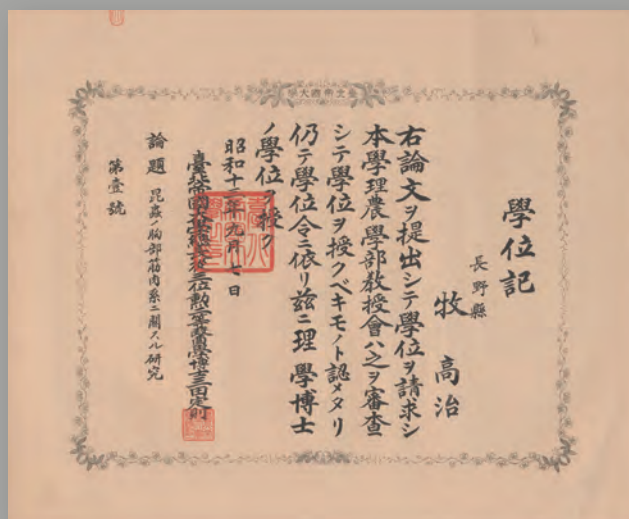 臺北帝國大學
學位記
長野縣
牧 高治
右論文ヲ提出シテ學位ヲ請求シ
本學理農學部教授會ハ之ヲ審査
シテ學位ヲ授クベキモノト認メタリ
仍テ學位令ニ依リ茲ニ理學博士
ノ學位ヲ授ク
昭和十二年九月七日
臺北帝國大學總長從三位勲 學博士三田定則
論題 昆蟲ノ胸部筋肉系ニ關スル研究
第壹號